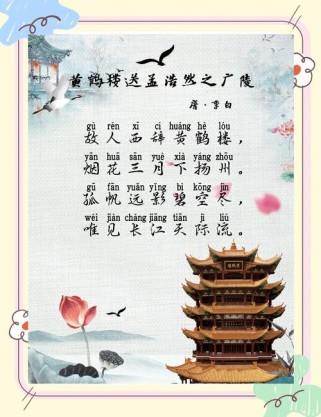 黄鹤楼送孟浩然之广陵
唐·李白
gù rén xī cí huáng hè lóu
故人西辞黄鹤楼，
yān huā sān yuè xià yáng zhōu
烟花三月下扬州。
gū fān yuǎn yǐng bì kōng jìn
孤帆远影碧空尽，
wéi jiàn cháng jiāng tiān jì liú
唯见长江天际流。